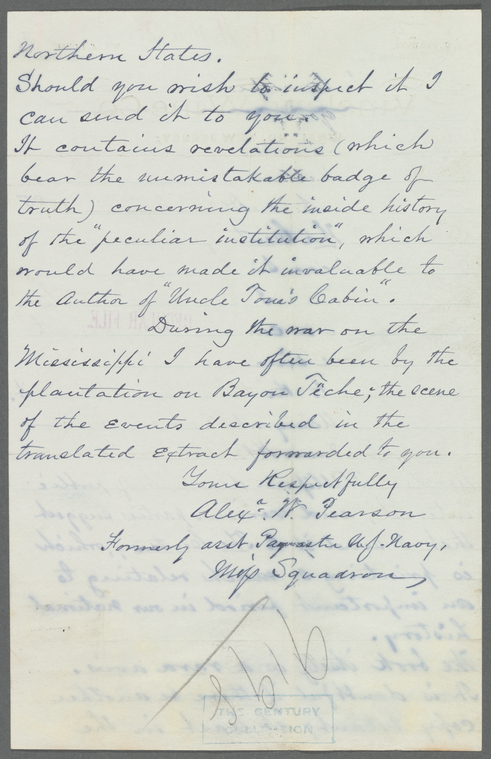 Northern States.
Should you wish to inspect it I
can send it to you.
It contains revelations (which
bear the unmistakable badge of
truth) concerning the inside history
of the "peculiar institution", which
would have made it invaluable to
the Author of "Uncle Tom's Cabin".
During the war on the
Mississippi I have often been by the
plantation on Bayou Têche; the scene
of the Events described in the
translated Extract forwarded to you.
Yours Respectfully
Alexr. W. Pearson
Formerly asst Paymaster U.S. Navy,
Miss Squadron
THE CENTURY